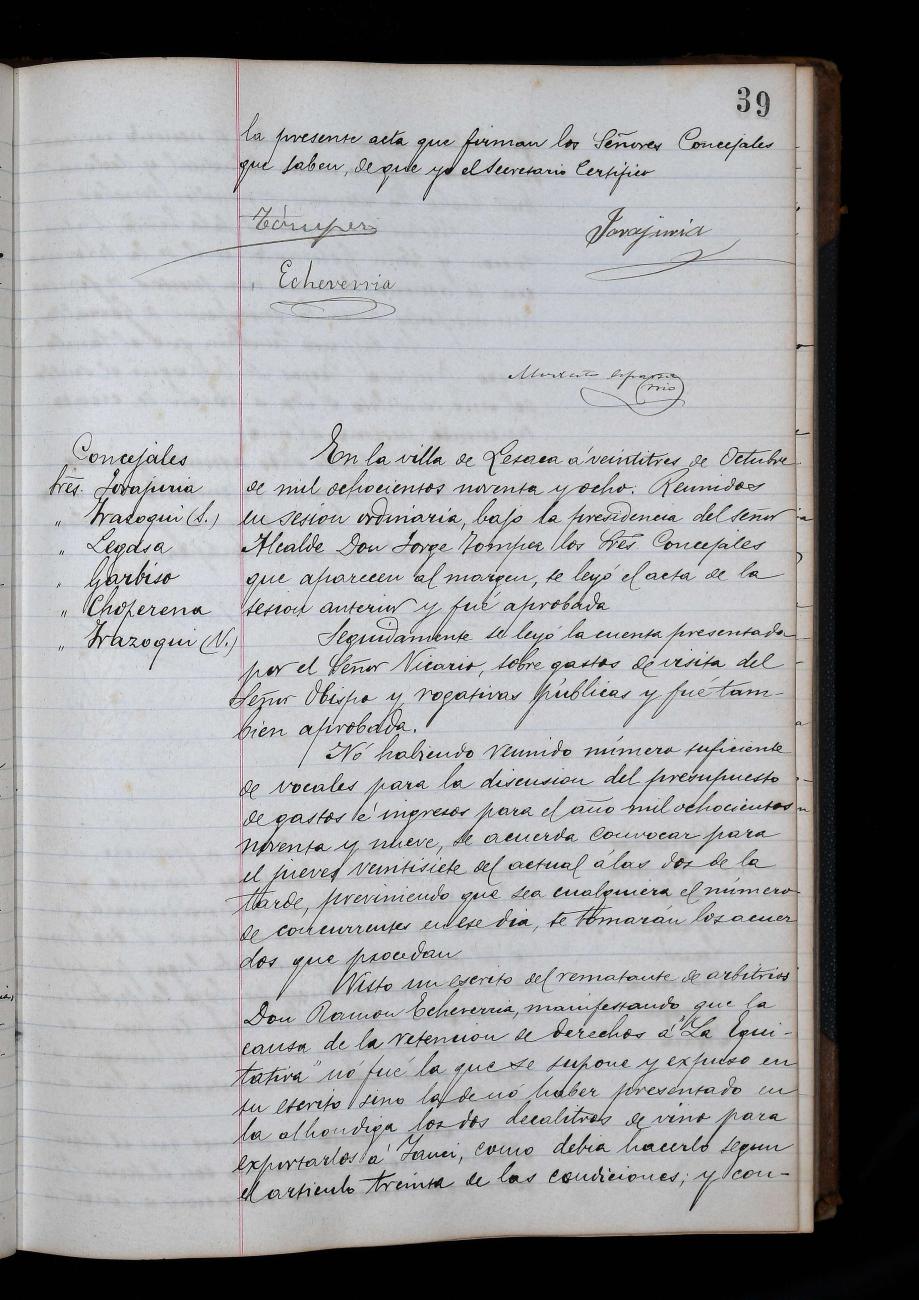 39
la presente acta que firman los Señores Concejales
que saben, de que yo el Secretario Certifico
Tompes
Jorajuria
Echeverria
Concejales
Sres. Jorajuria
" Irazoqui (S.)
" Legasa
" Garbiso
" Choperena
" Irazoqui (N.)
En la villa de Lesaca á veintitres de Octubre
de mil ochocientos noventa y ocho. Reunidos
en sesion ordinaria, bajo la presidencia del señor
Alcalde Don Jorge Tompes los Sres. Concejales
que aparecen al margen, se leyó el acta de la
sesion anterior y fué aprobada
Seguidamente se leyó la cuenta presentada
por el Señor Vicario, sobre gastos de visita del
Señor Obispo y rogativas públicas y fué tam-
bien aprobada.
No habiendo reunido número suficiente
de vocales para la discusion del presupuesto
de gastos é ingresos para el año mil ochocientos
noventa y nueve, se acuerda convocar para
el jueves veintisiete del actual á las dos de la
tarde, previniendo que sea cualquiera el número
de concurrentes en ese dia, se tomarán los acuer
dos que procedan
Visto un escrito del rematante de arbitrios
Don Ramon Echeverria, manifestando que la
causa de la retencion de derechos á "La Equi-
tativa" no fué la que se supone y expuso en
su escrito sino la de nó haber presentado en
la alhondiga los dos decalitros de vino para
exportarlos á Yanci, como debia hacerlo segun
el articulo treinta de las condiciones; y con-